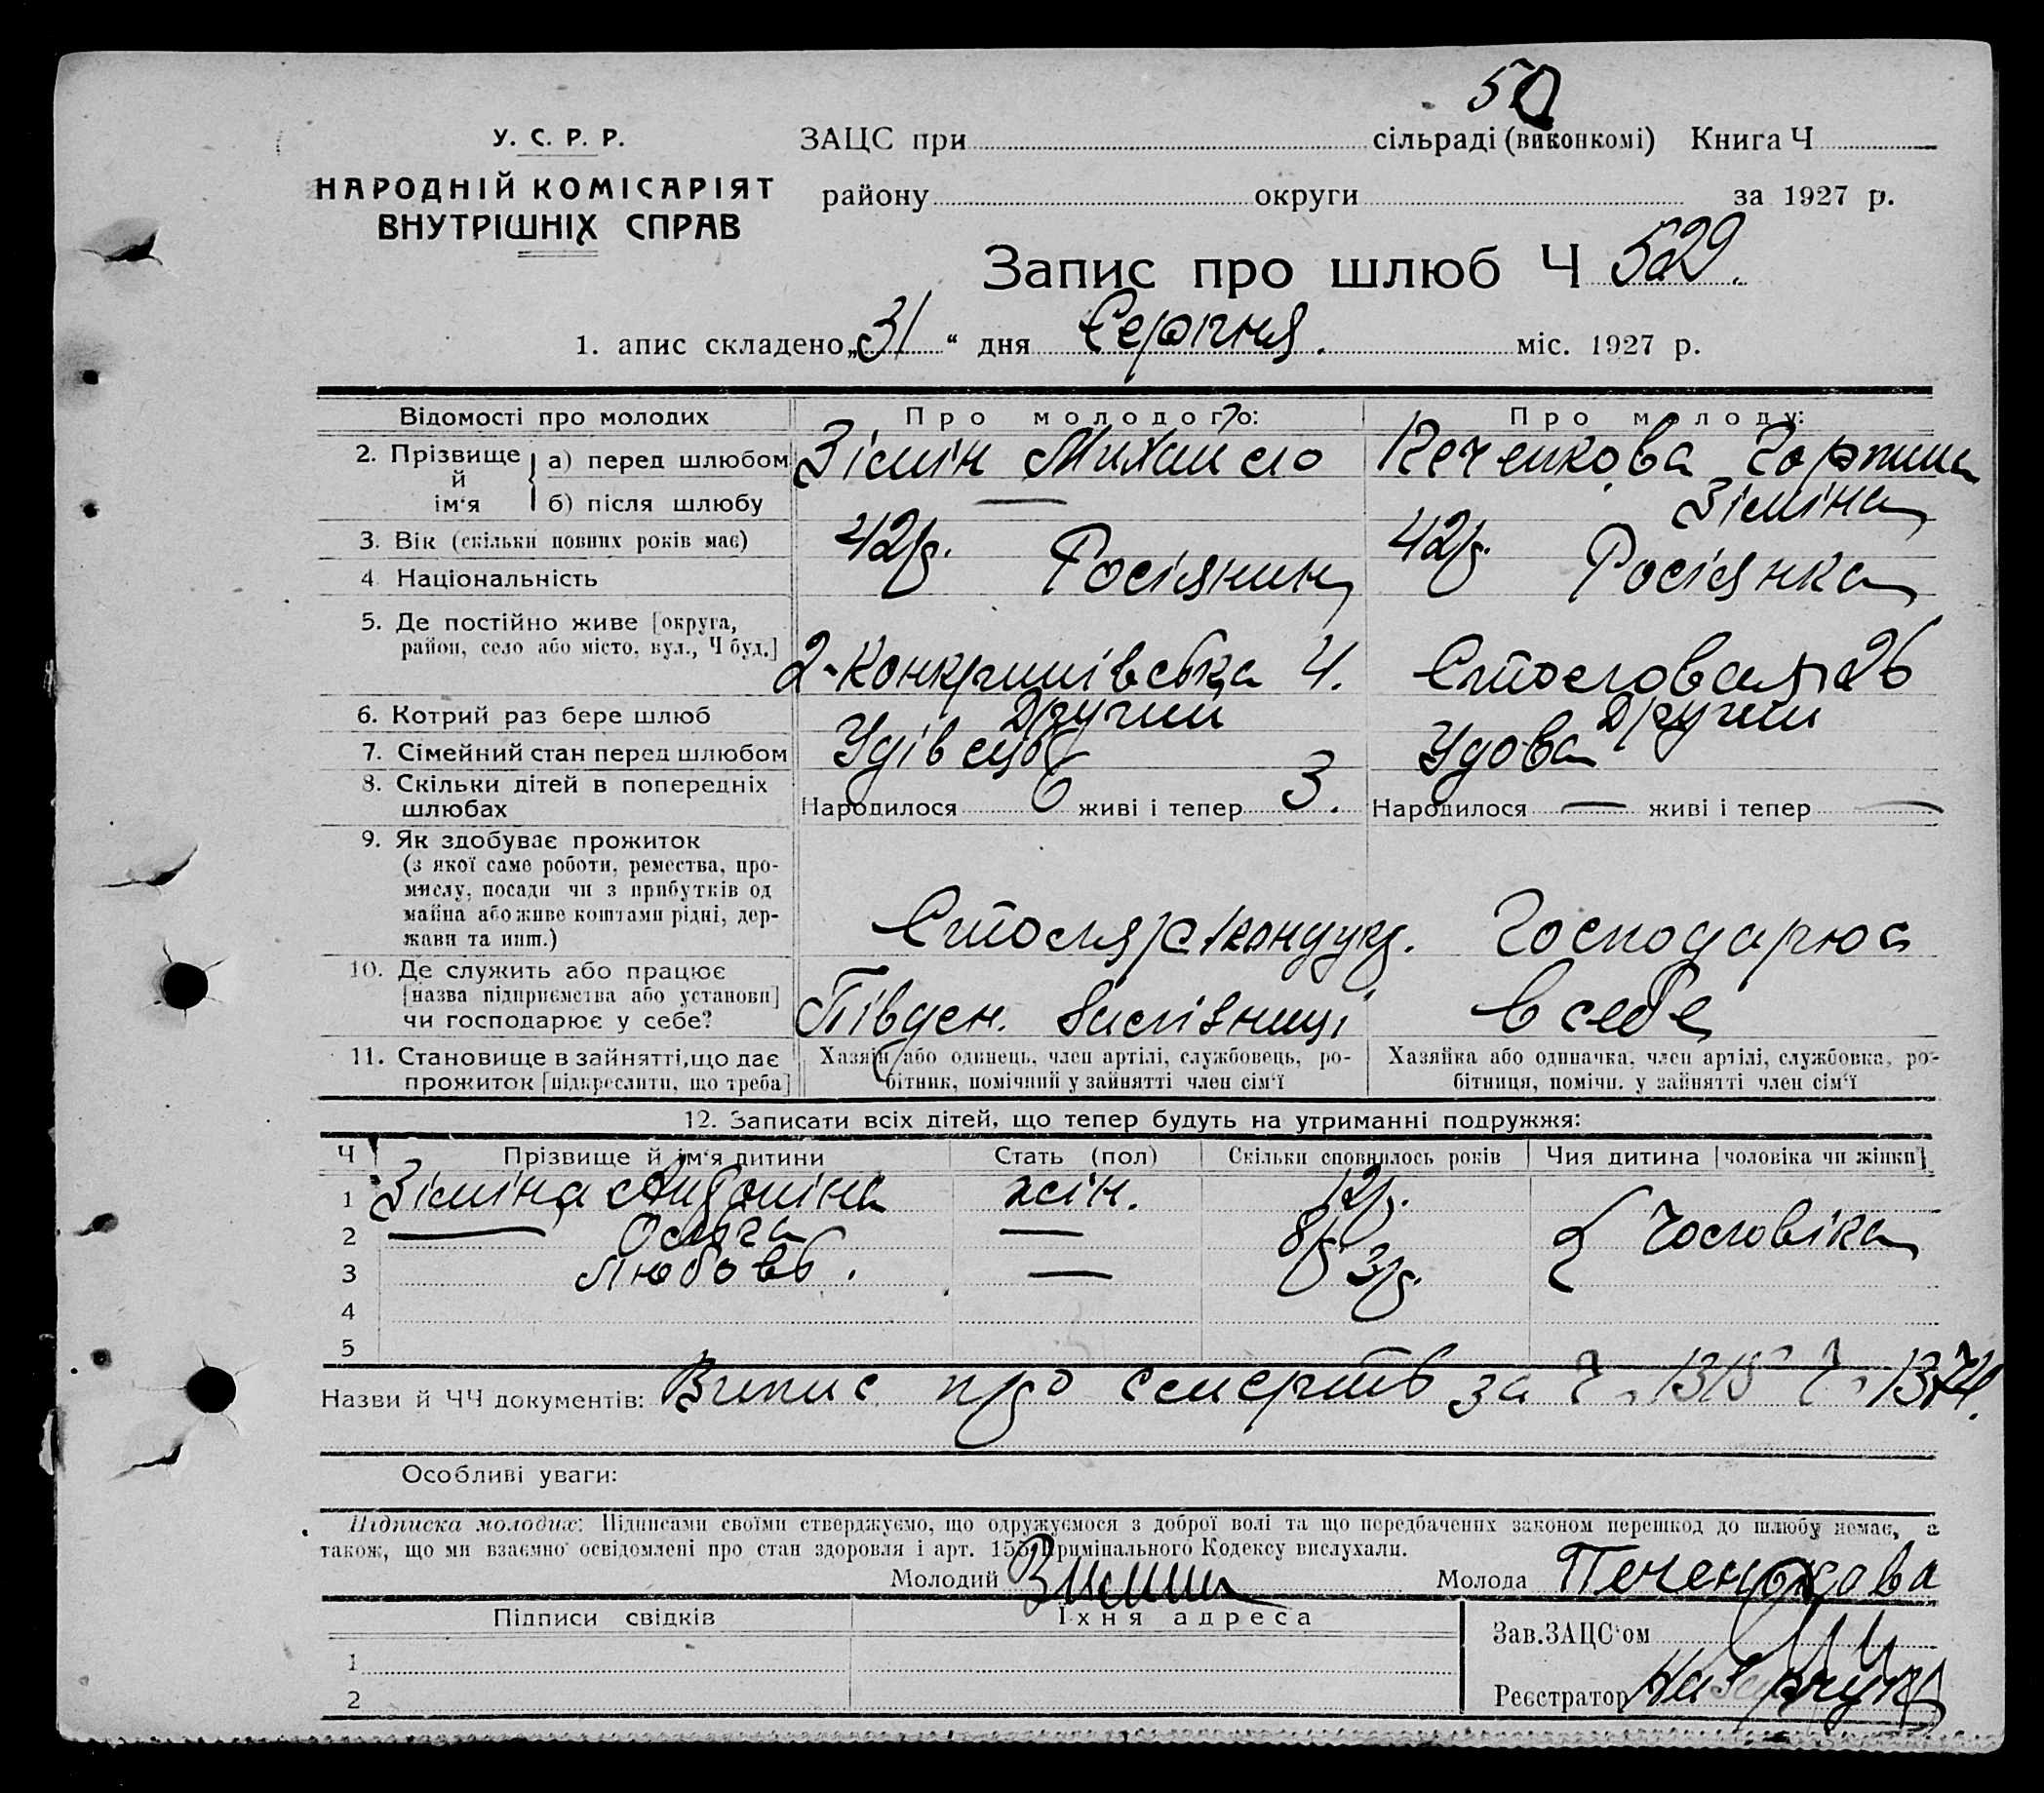 50
У. С. Р. Р.
НАРОДНІЙ КОМІСАРІЯТ
ВНУТРІШНІХ СПРАВ
ЗАЦС при сільраді (виконкомі) Книга Ч
району округи за 1927 р.
Запис про шлюб Ч 529.
1. апис складено „31“ дня Серпня. міс. 1927 р.
Відомості про молодих Про молодого: Про молоду:
2. Прізвище й ім'я а) перед шлюбом Зімін Михайло Печенкова
б) після шлюбу — Зіміна
3. Вік (скільки повних років має) 42р. 42р.
4. Національність Росіянин Росіянка
5. Де постійно живе [округа,
район, село або місто, вул., Ч буд.] 4. 26
6. Котрий раз бере шлюб Другий Другий
7. Сімейний стан перед шлюбом Удівець Удова
8. Скільки дітей в попередніх
шлюбах Народилося 6 живі і тепер 3. Народилося — живі і тепер —
9. Як здобуває прожиток
(з якої саме роботи, ремества, про-
мислу, посади чи з прибутків од
майна або живе коштами рідні, дер-
жави та инш.) Столяр Господарює
10. Де служить або працює
[назва підприємства або установи]
чи господарює у себе? Півден. в себе
11. Становище в зайнятті, що дає
прожиток [підкреслити, що треба]
Хазяїн або одинець, член артілі, службовець, ро-
бітник, помічний у зайнятті член сім'ї
Хазяйка або одиначка, член артілі, службовка, ро-
бітниця, помічн. у зайнятті член сім'ї
12. Записати всіх дітей, що тепер будуть на утриманні подружжя:
Ч Прізвище й ім'я дитини Стать (пол) Скільки сповнилось років Чия дитина [чоловіка чи жінки]
1 Зіміна жін. 12р.
2 — Ольга — 8р. Чоловіка
3 Любовь. — 3р.
4
5
Назви й ЧЧ документів: Випис про смерть за Ч. 1315 Ч. 1374.
Особливі уваги:
Підписка молодих: Підписами своїми стверджуємо, що одружуємося з доброї волі та що передбачених законом перешкод до шлюбу немає, а
також, що ми взаємно освідомлені про стан здоровля і арт. 155 Кримінального Кодексу вислухали.
Молодий Зимин Молода
Підписи свідків Їхня адреса
Зав. ЗАЦС'ом
1
Реєстратор
2